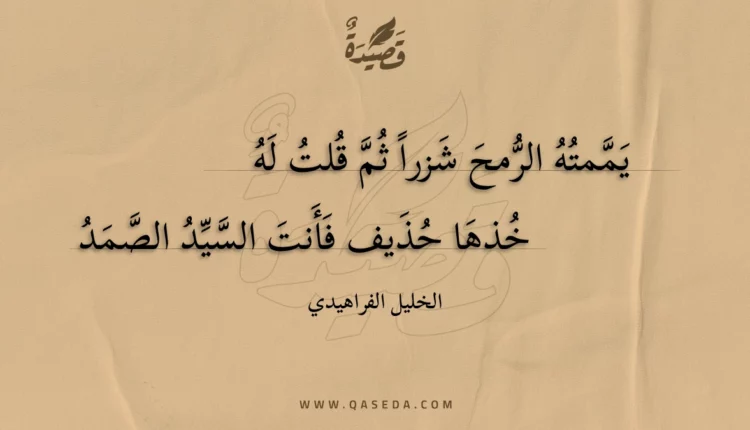 قَصِيدَةٌ
يَمَّمتُهُ الرُّمحَ شَزراً ثُمَّ قُلتُ لَهُ
خُذهَا حُذَيف فَأَنتَ السَّيِّدُ الصَّمَدُ
الخليل الفراهيدي
WWW.QASEDA.COM